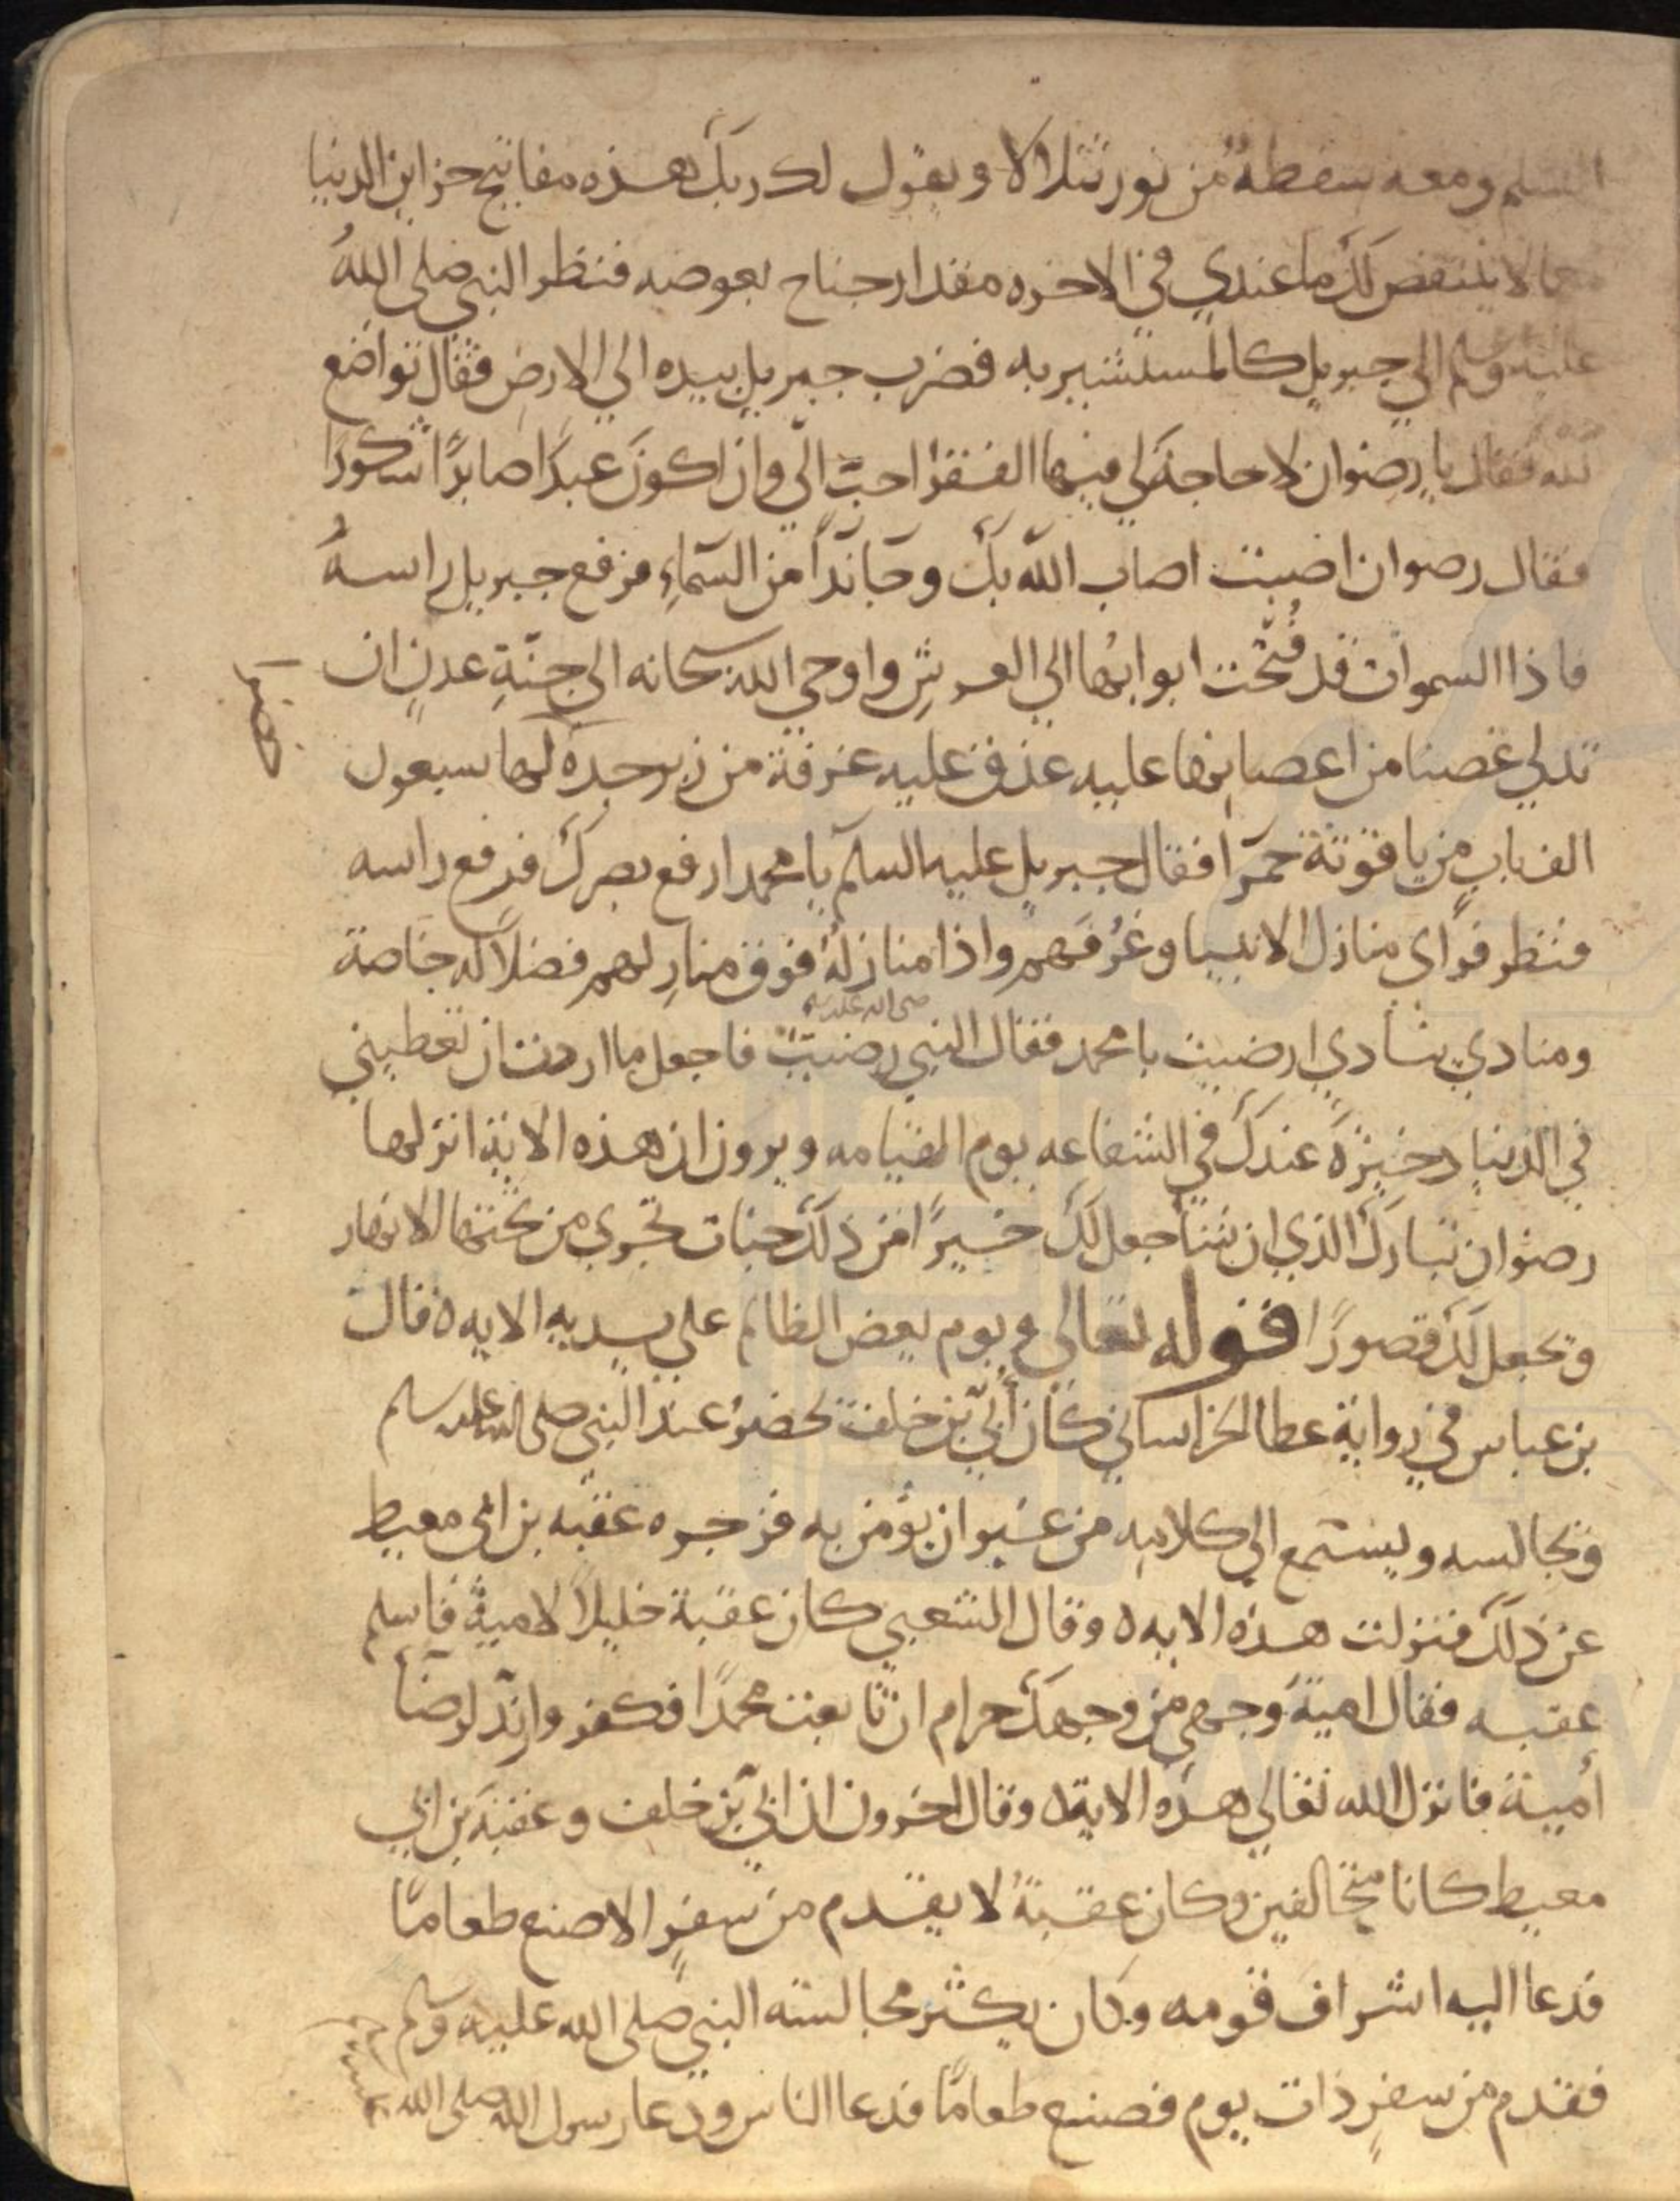 السلم ومعه سفطة من نور تتلالا ويقول لك ربك هذه مفاتيح خزاين الدنيا
مما لا ينتقص لك ما عندي في الاخره مقدار جناح بعوضه فنظر النبي صلى الله
عليه وسلم الي جبريل كالمستشير به فضرب جبريل بيده الي الارض فقال تواضع
لله فقال يا رضوان لا حاجة لي فيها الفقر احبّ اليّ وان اكون عبدًا صابرًا شكورًا
فقال رضوان اصبت اصاب الله بك وجا ندآ من السمآء فرفع جبريل راسهُ
فاذا السموات قد فُتحت ابوابُها الي العرشِ واوحي الله سبحانه الى جنّةِ عدنٍ ان
تدلي غصنا من اغصانها عليه عذق عليه غرفة من زبرجده لها سبعون
الف بابٍ من ياقوتة حمرآ فقال جبريل عليه السلم يا محمد ارفع بصرك فرفع راسه
فنظر فرأى منازل الانبيا وغرفهم واذا منازلهُ فوق منازلهم فضلًا له خاصة
ومنادي ينادي ارضيت يا محمد فقال النبي صلى الله عليه وسلم رضيت فاجعل ما اردت ان تعطيني
في الدنيا ذخيرة عندك في الشفاعه يوم القيامه ويرون ان هذه الاية انزلها
رضوان تبارك الذي ان شا جعل لك خيرًا من ذلك جنات تجري من تحتها الانهار
ويجعل لك قصورًا قوله تعالى ويوم يعض الظالم علي يديه الايه ه قال
بن عباس في رواية عطا الخراساني كان أُبيّ بن خلف يحضرُ عند النبي صلى الله عليه وسلم
ويجالسه ويستمع الي كلامه من غير ان يؤمن به فزجره عقبه بن ابي معيط
عن ذلك فنزلت هذه الايه ه وقال الشعبي كان عقبة خليلًا لامية فاسلم
عقبه فقال امية وجهي من وجهك حرام ان تابعت محمدًا فكفر وارتد لرضا
أمية فانزل الله تعالي هذه الاية ه وقال اخرون ان ابيّ بن خلف وعقبة بن ابي
معيط كانا متحالفين وكان عقبةُ لا يقدم من سفرٍ الا صنع طعامًا
فدعا اليه اشراف قومه وكان يكثر مجالسته النبي صلى الله عليه وسلم
فقدم من سفرٍ ذات يوم فصنع طعامًا فدعا الناس ودعا رسول الله صلى الله